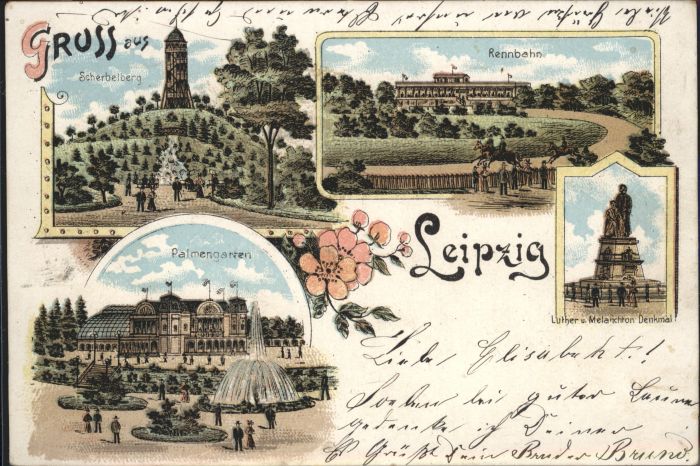 GRUSS aus
Scherbelberg
Rennbahn.
Palmengarten
Leipzig
Luther u. Melanchton Denkmal
Liebe Elisabeht!
Soeben bei guter Laune
gedenke ich Deiner
Es Grüßt Dein Bruder Bruno.